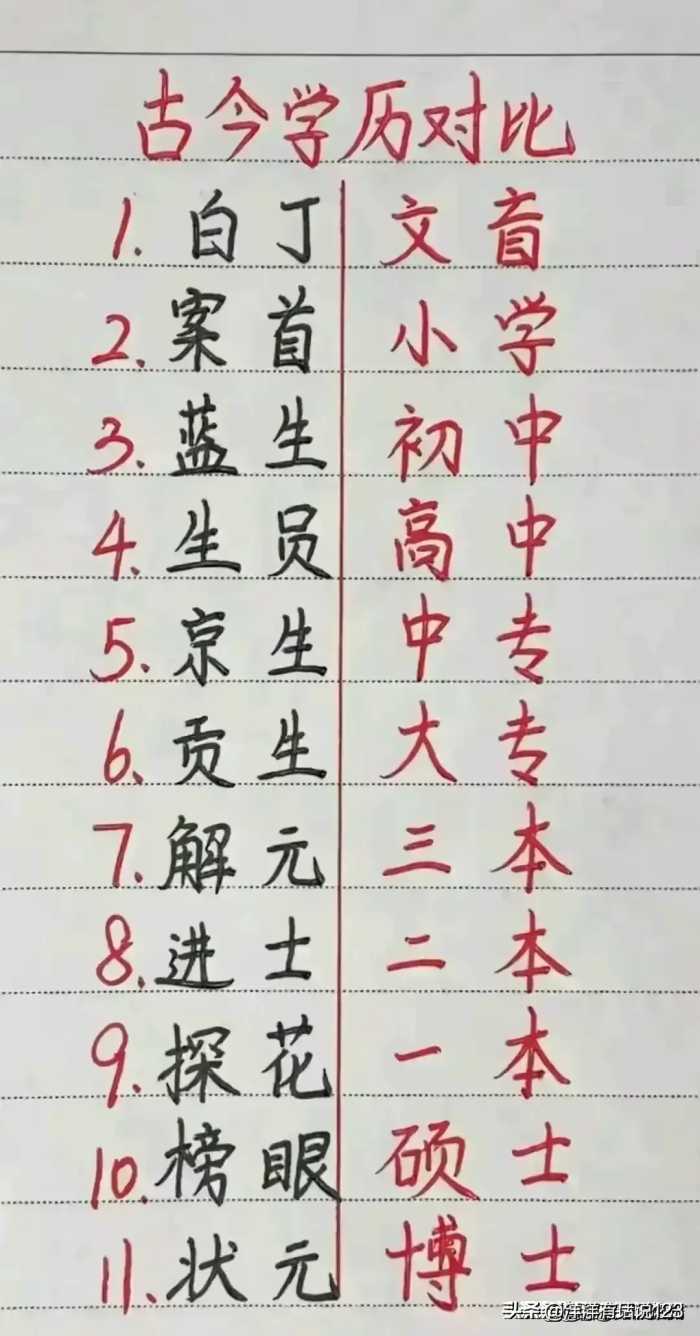 古今学历对比
1. 白丁 文盲
2. 案首 小学
3. 蓝生 初中
4. 生员 高中
5. 京生 中专
6. 贡生 大专
7. 解元 三本
8. 进士 二本
9. 探花 一本
10. 榜眼 硕士
11. 状元 博士
头条